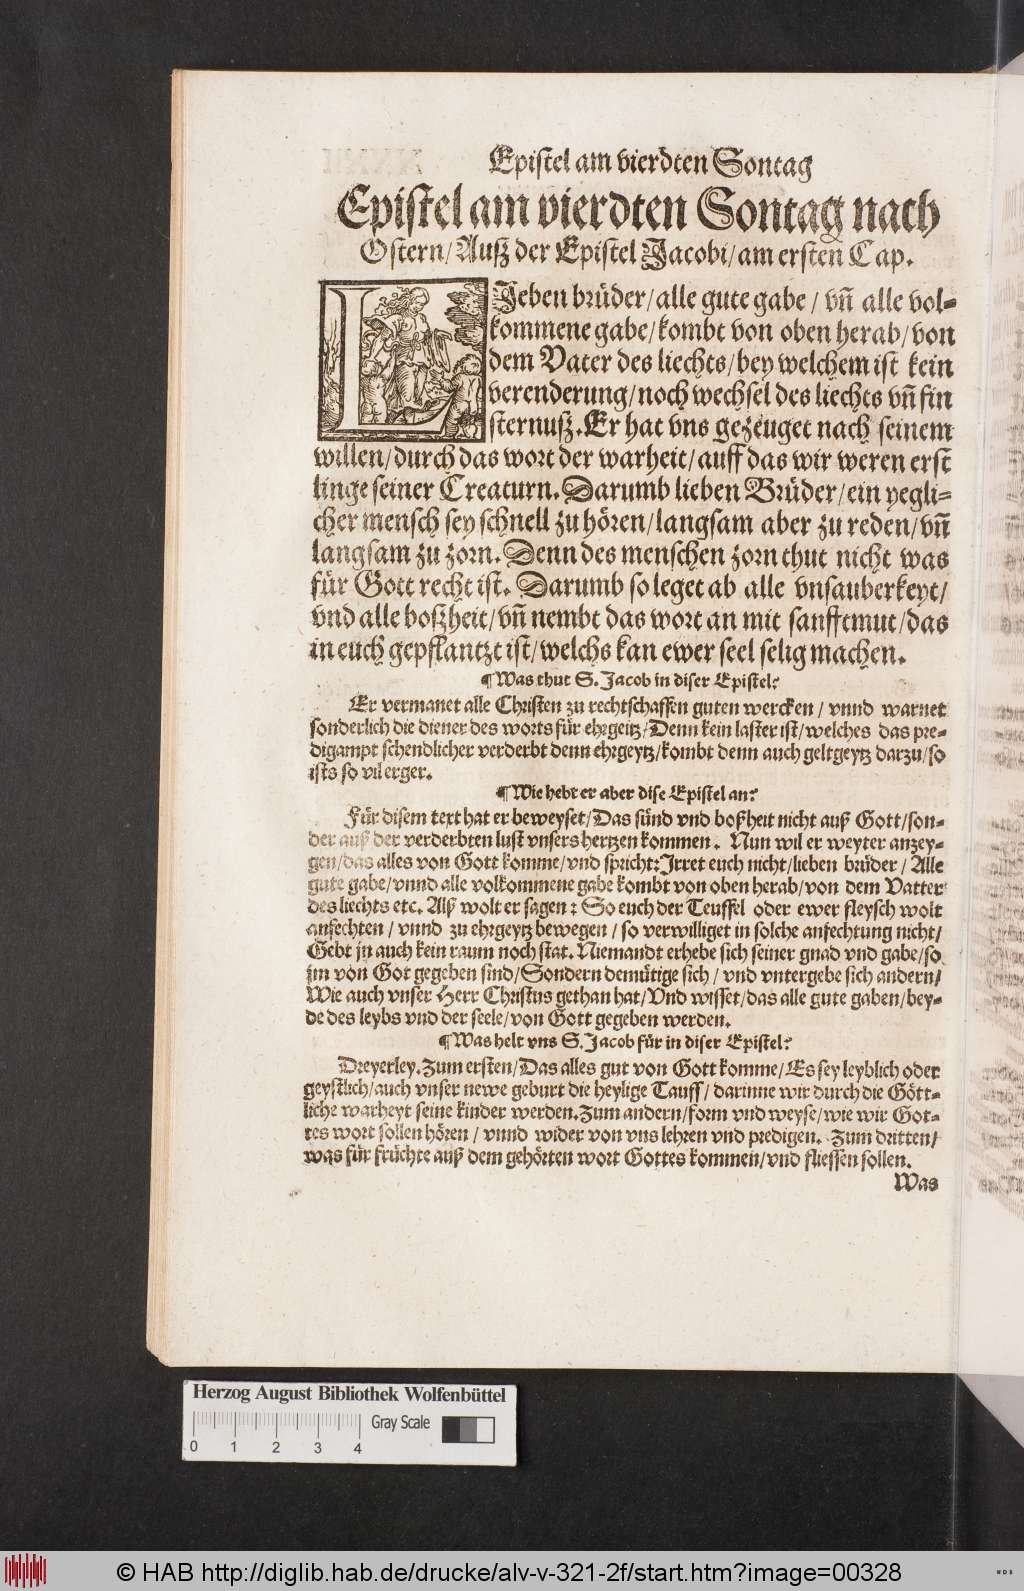 Epistel am vierdten Sontag
Epistel am vierdten Sontag nach
Ostern/ Auß der Epistel Jacobi/ am ersten Cap.
LJeben brüder/ alle gute gabe / vñ alle vol-
kommene gabe/ kombt von oben herab/ von
dem Vater des liechts/ bey welchem ist kein
verenderung/ noch wechsel des liechts vñ fin
sternuß. Er hat vns gezeuget nach seinem
willen/ durch das wort der warheit/ auff das wir weren erst
linge seiner Creaturn. Darumb lieben Brüder/ ein yegli-
cher mensch sey schnell zu hören/ langsam aber zu reden/ vñ
langsam zu zorn. Denn des menschen zorn thut nicht was
für Gott recht ist. Darumb so leget ab alle vnsauberkeyt/
vnd alle boßheit/ vñ nembt das wort an mit sanfftmut/ das
in euch gepflantzt ist/ welchs kan ewer seel selig machen.
¶ Was thut S. Jacob in diser Epistel?
Er vermanet alle Christen zu rechtschaffen guten wercken / vnnd warnet
sonderlich die diener des worts für ehrgeitz/ Denn kein laster ist/ welches das pre-
digampt schendlicher verderbt denn ehrgeytz/ kombt denn auch geltgeytz darzu/ so
ists so vil erger.
¶ Wie hebt er aber dise Epistel an?
Für disem text hat er beweyset/ Das sünd vnd boßheit nicht auß Gott/ son-
der auß der verderbten lust vnsers hertzen kommen. Nun wil er weyter anzey-
gen/ das alles von Gott komme/ vnd spricht: Irret euch nicht/ lieben brüder / Alle
gute gabe/ vnnd alle volkommene gabe kombt von oben herab/ von dem Vatter
des liechts etc. Alß wolt er sagen: So euch der Teuffel oder ewer fleysch wolt
anfechten / vnnd zu ehrgeytz bewegen / so verwilliget in solche anfechtung nicht/
Gebt jn auch kein raum noch stat. Niemandt erhebe sich seiner gnad vnd gabe/ so
jm von Got gegeben sind/ Sondern demütige sich / vnd vntergebe sich andern/
Wie auch vnser Herr Christus gethan hat/ Vnd wisset/ das alle gute gaben/ bey-
de des leybs vnd der seele/ von Gott gegeben werden.
¶ Was helt vns S. Jacob für in diser Epistel?
Dreyerley. Zum ersten/ Das alles gut von Gott komme/ Es sey leyblich oder
geystlich/ auch vnser newe geburt die heylige Tauff/ darinne wir durch die Gött-
liche warheyt seine kinder werden. Zum andern/ form vnd weyse/ wie wir Got-
tes wort sollen hören / vnnd wider von vns lehren vnd predigen. Zum dritten/
was für früchte auß dem gehörten wort Gottes kommen/ vnd fliessen sollen.
Was
Herzog August Bibliothek Wolfenbüttel
Gray Scale
0 1 2 3 4
© HAB http://diglib.hab.de/drucke/alv-v-321-2f/start.htm?image=00328